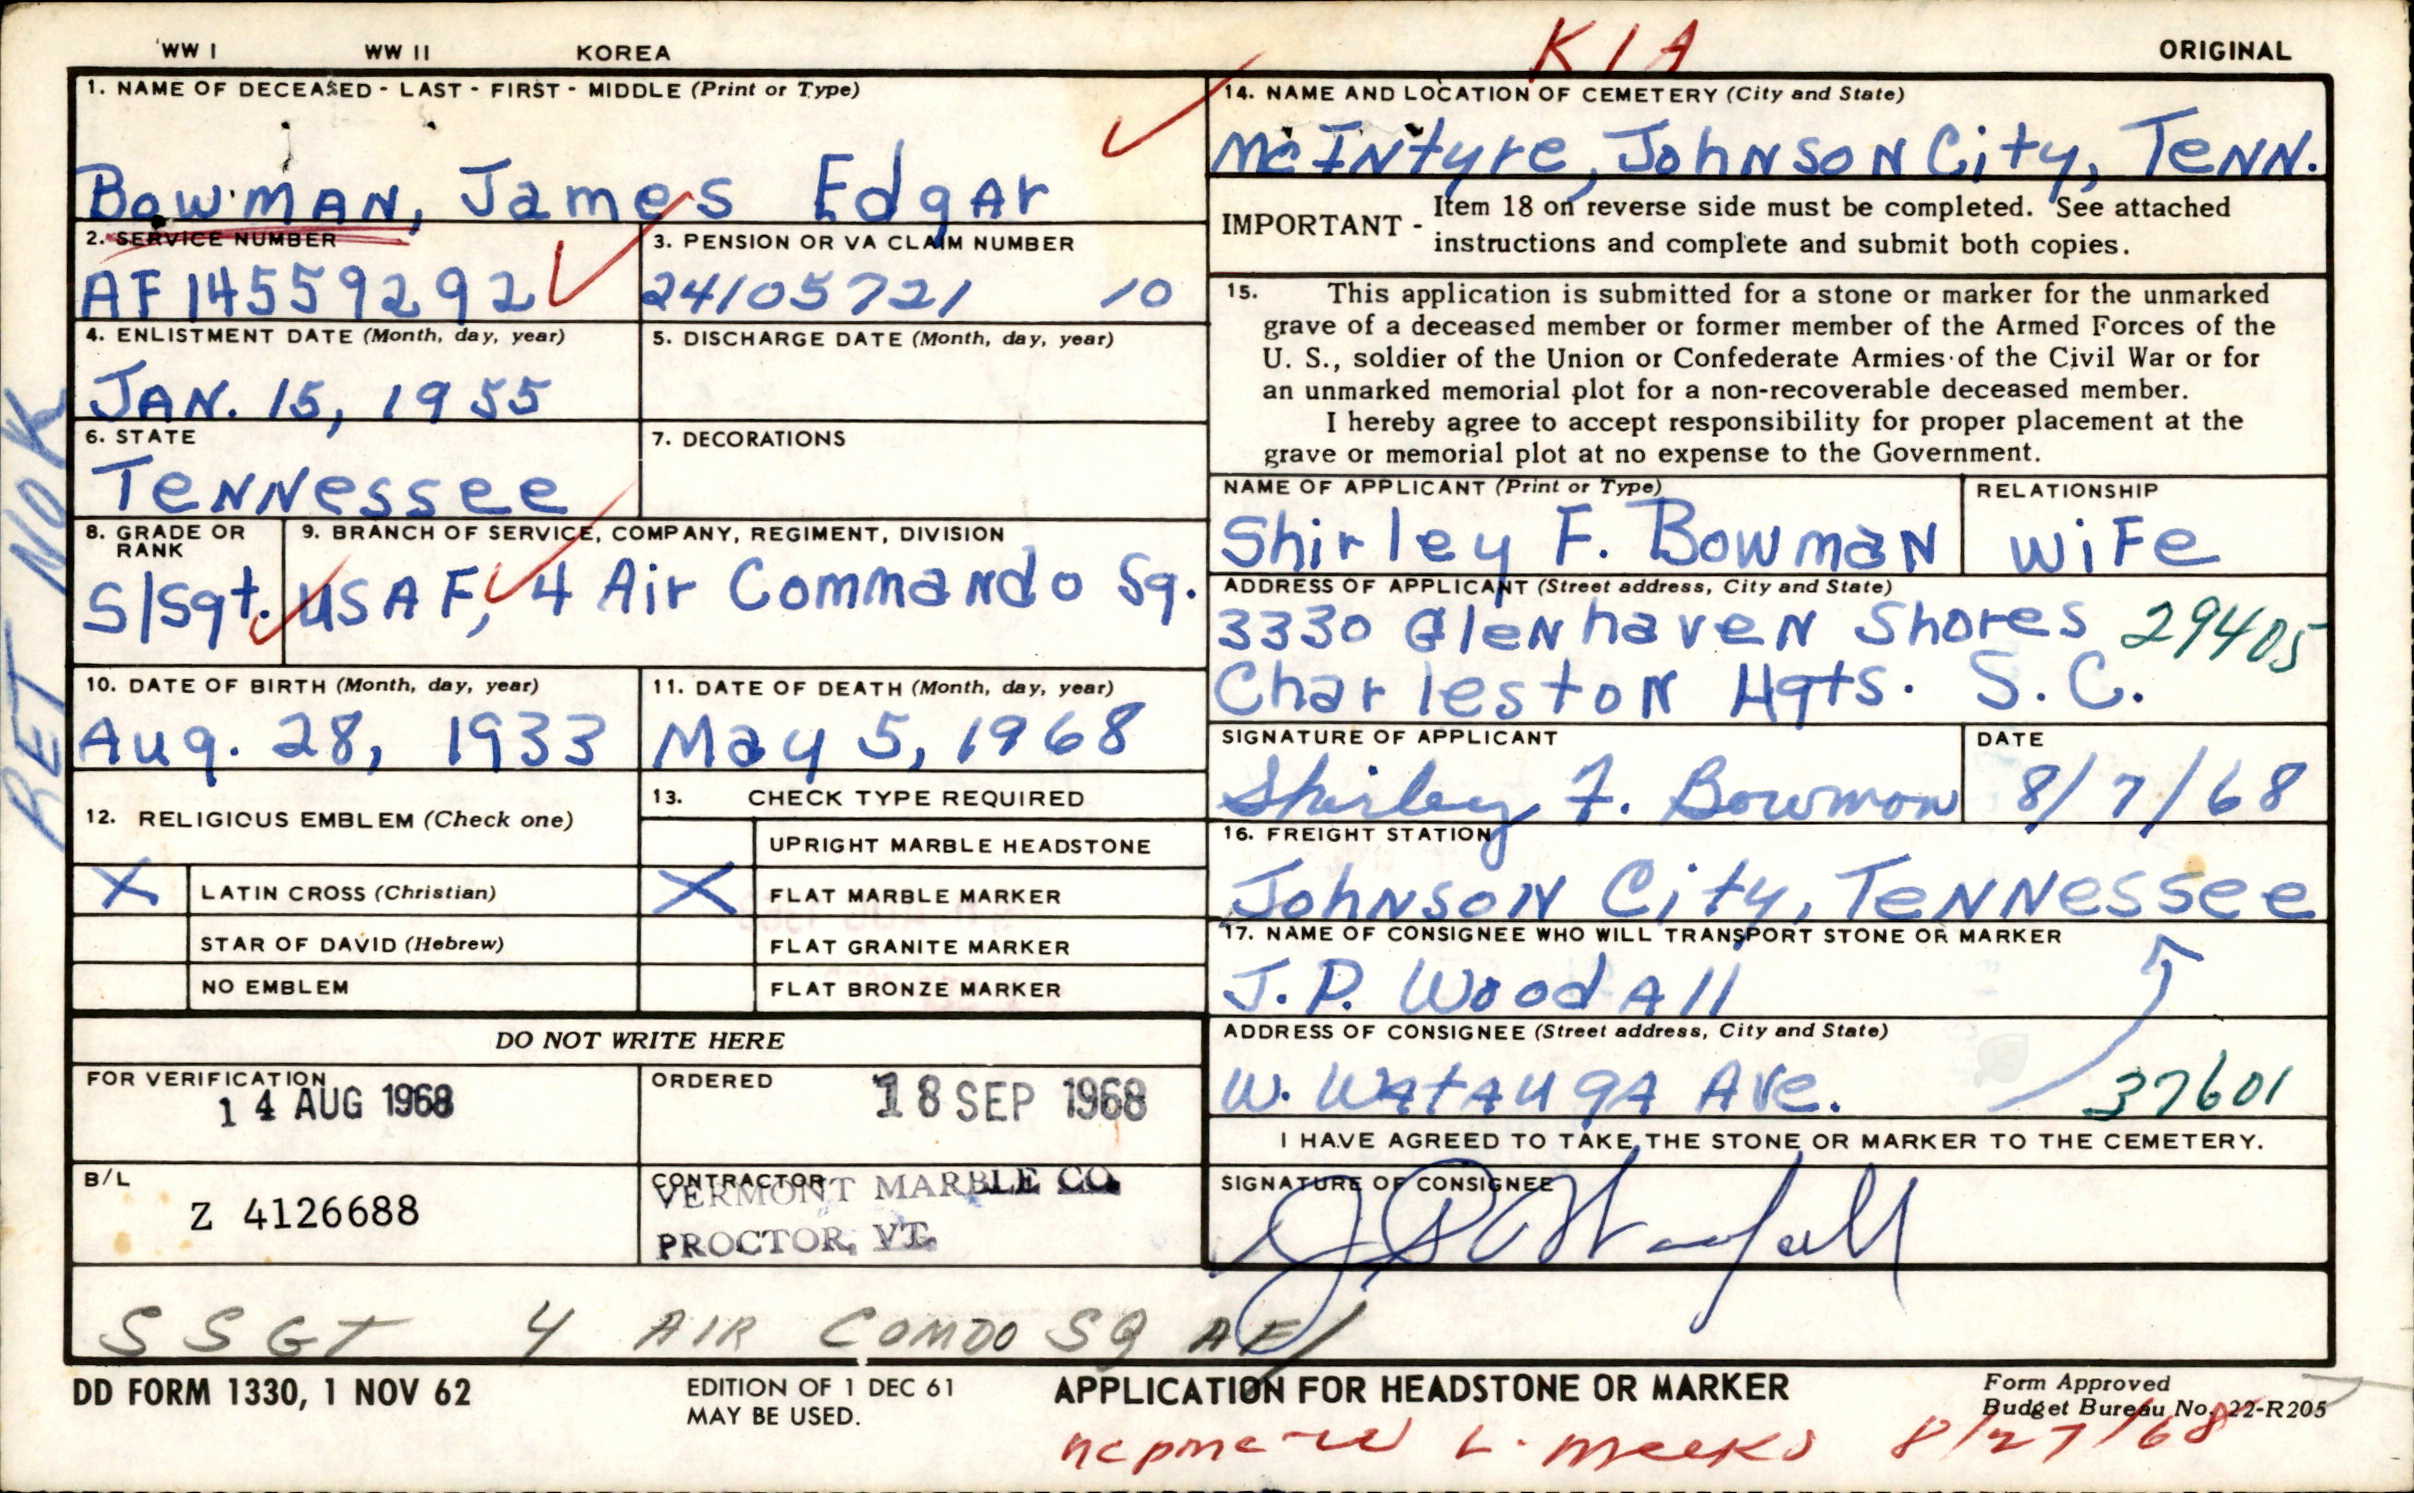 WW I WW II KOREA KIA ORIGINAL
1. NAME OF DECEASED - LAST - FIRST - MIDDLE (Print or Type)
Bowman, James Edgar
2. SERVICE NUMBER
AF 14559292
3. PENSION OR VA CLAIM NUMBER
24105721 10
4. ENLISTMENT DATE (Month, day, year)
JAN. 15, 1955
5. DISCHARGE DATE (Month, day, year)
6. STATE
Tennessee
7. DECORATIONS
8. GRADE OR RANK
S/Sgt.
9. BRANCH OF SERVICE, COMPANY, REGIMENT, DIVISION
USAF, 4 Air Commando Sq.
10. DATE OF BIRTH (Month, day, year)
Aug. 28, 1933
11. DATE OF DEATH (Month, day, year)
May 5, 1968
12. RELIGIOUS EMBLEM (Check one)
X LATIN CROSS (Christian)
STAR OF DAVID (Hebrew)
NO EMBLEM
13. CHECK TYPE REQUIRED
UPRIGHT MARBLE HEADSTONE
X FLAT MARBLE MARKER
FLAT GRANITE MARKER
FLAT BRONZE MARKER
DO NOT WRITE HERE
FOR VERIFICATION
14 AUG 1968
ORDERED
18 SEP 1968
B/L
Z 4126688
CONTRACTOR
VERMONT MARBLE CO.
PROCTOR, VT.
RET NOK
14. NAME AND LOCATION OF CEMETERY (City and State)
McIntyre, Johnson City, Tenn.
IMPORTANT - Item 18 on reverse side must be completed. See attached
instructions and complete and submit both copies.
15. This application is submitted for a stone or marker for the unmarked
grave of a deceased member or former member of the Armed Forces of the
U. S., soldier of the Union or Confederate Armies of the Civil War or for
an unmarked memorial plot for a non-recoverable deceased member.
I hereby agree to accept responsibility for proper placement at the
grave or memorial plot at no expense to the Government.
NAME OF APPLICANT (Print or Type)
Shirley F. Bowman
RELATIONSHIP
Wife
ADDRESS OF APPLICANT (Street address, City and State)
3330 Glenhaven Shores 29405
Charleston Hgts. S.C.
SIGNATURE OF APPLICANT
Shirley F. Bowman
DATE
8/7/68
16. FREIGHT STATION
Johnson City, Tennessee
17. NAME OF CONSIGNEE WHO WILL TRANSPORT STONE OR MARKER
J.P. Woodall
ADDRESS OF CONSIGNEE (Street address, City and State)
W. Watauga Ave. 37601
I HAVE AGREED TO TAKE THE STONE OR MARKER TO THE CEMETERY.
SIGNATURE OF CONSIGNEE
SSGT 4 AIR COMDO SQ AF
DD FORM 1330, 1 NOV 62
EDITION OF 1 DEC 61
MAY BE USED.
APPLICATION FOR HEADSTONE OR MARKER
Form Approved
Budget Bureau No. 22-R205
L. Meeks 8/27/68